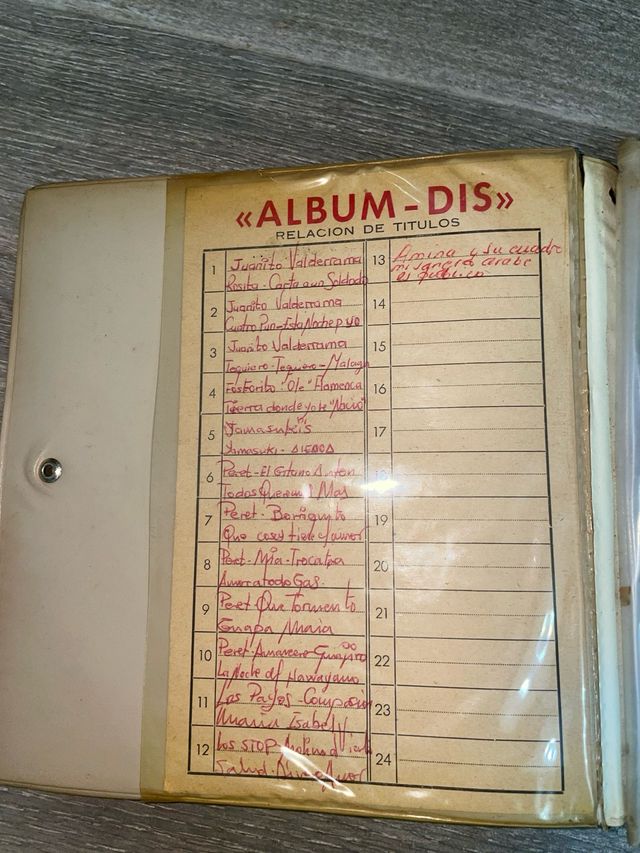 «ALBUM-DIS»
RELACION DE TITULOS
1 Juanito Valderrama
Rosita - Carta a un Soldado
2 Juanito Valderrama
Cuatro Pun-Esta Noche p yo
3 Juanito Valderrama
Tequiero-Tequiero-Malaga
4 Fosforito "Ole" Flamenca
Tierra donde yo le "Nacio"
5 Yamasuki's
Yamasuki - AIEAOA
6 Peret - El Gitano Anton
Todos Queremos Mas
7 Peret - Boriquito
Que cosas tiene el amor
8 Peret - Mia -
Amor a todo Gas.
9 Peret Que Tormento
Guapa Maria
10 Peret - Amanecer Guajiro
La Noche del Hawayano
11 Los Payos - Compasion
Maria Isabel
12 Los STOP - Molino al Viento
Salud Amor
13 Amina y su cuadro
mi sangre arabe
el publico
14
15
16
17
18
19
20
21
22
23
24